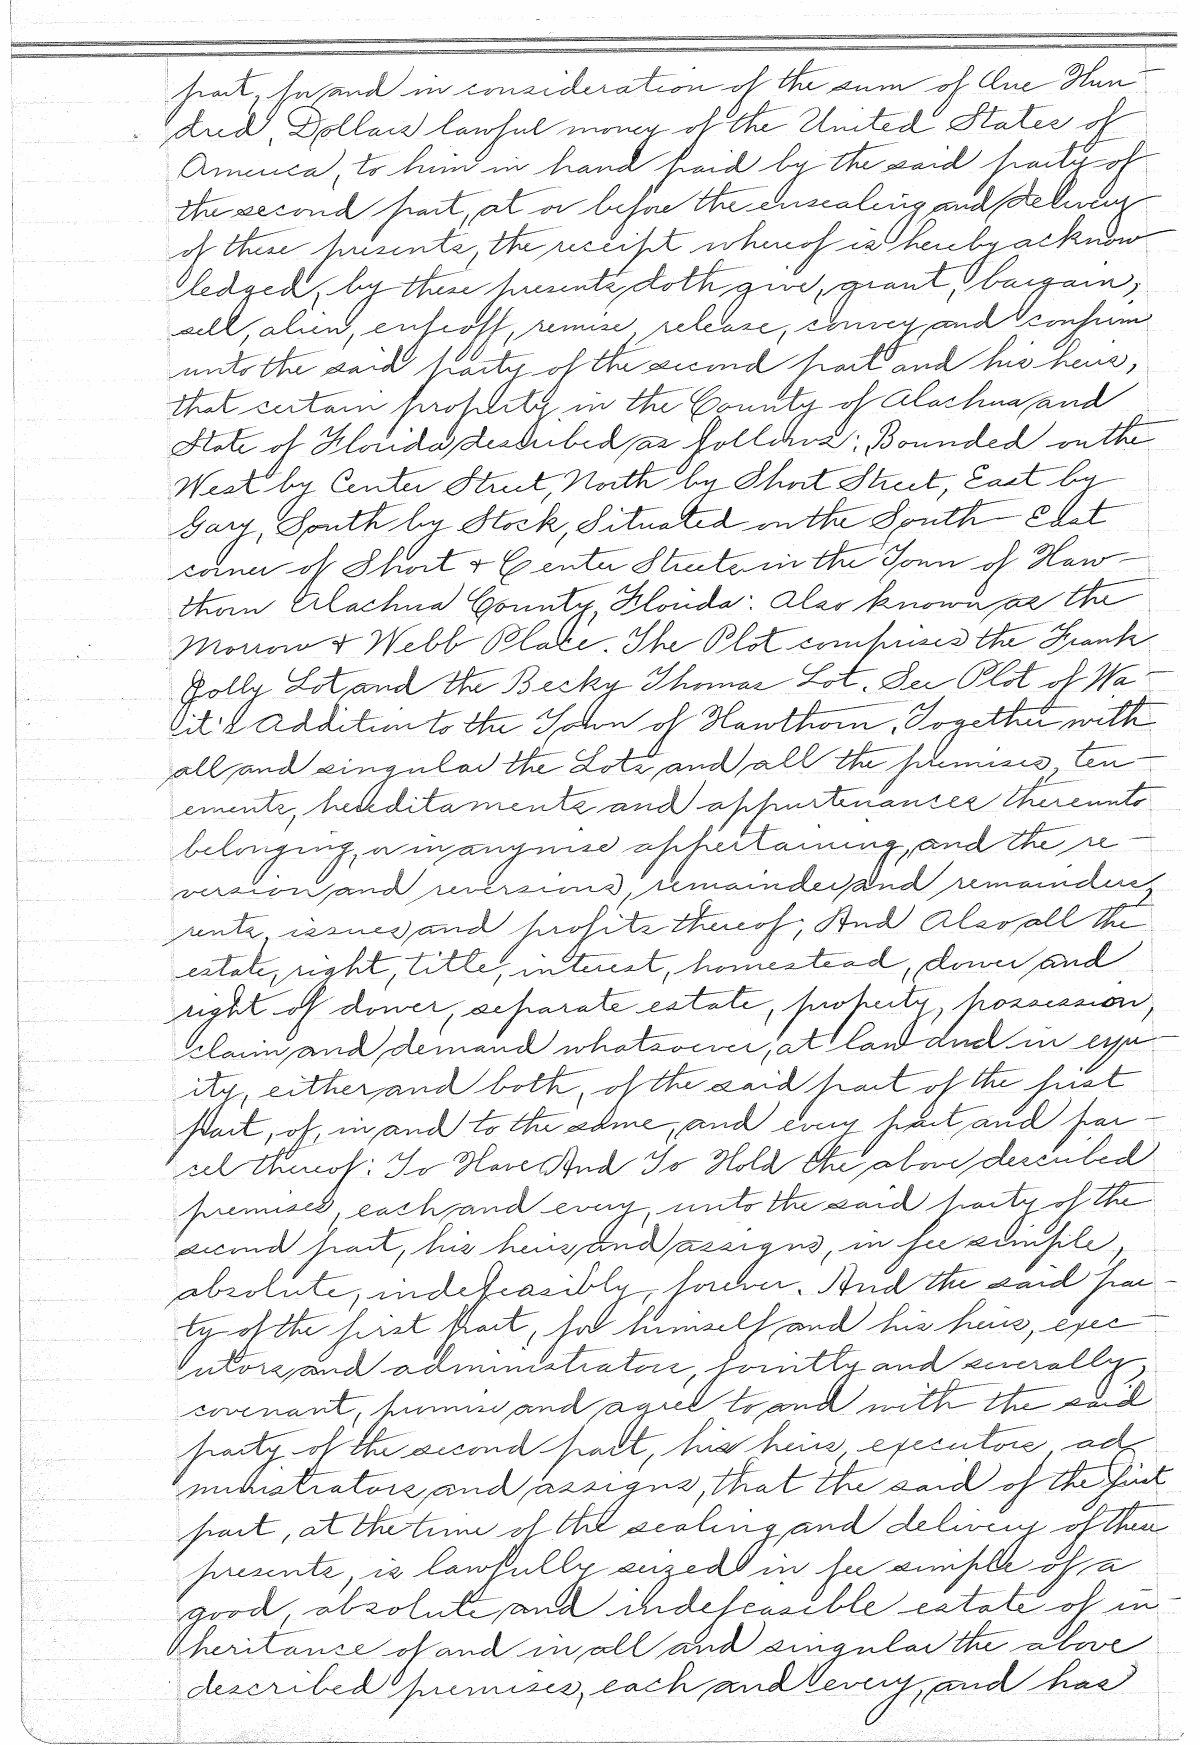 part, for and in consideration of the sum of One Hun-
dred, Dollars lawful money of the United States of
America, to him in hand paid by the said party of
the second part, at or before the ensealing and delivery
of these presents, the receipt whereof is hereby acknow
ledged, by these presents, doth give, grant, bargain,
sell, alien, enfeoff, remise, release, convey and confirm
unto the said party of the second part and his heirs,
that certain property in the County of Alachua and
State of Florida described as follows: Bounded on the
West by Center Street, North by Short Street, East by
Gary, South by Stock, Situated on the South East
corner of Short & Center Streets in the Town of Haw-
thorn Alachua County, Florida: Also known as the
Morrow & Webb Place. The Plot comprises the Frank
Jolly Lot and the Becky Thomas Lot. See Plot of Wa-
it's Addition to the Town of Hawthorn. Together with
all and singular the Lots, and all the premises, ten-
ements, hereditaments and appurtenances thereunto
belonging, or in anywise appertaining, and the re-
version and reversions, remainder and remainders,
rents, issues and profits thereof; And Also all the
estate, right, title, interest, homestead, dower and
right of dower, separate estate, property, possession,
claim and demand whatsoever, at law and in equ-
ity, either and both, of the said part of the first
part, of, in and to the same, and every part and par-
cel thereof: To Have And To Hold the above described
premises, each and every, unto the said party of the
second part, his heirs and assigns, in fee simple,
absolute, indefeasibly, forever. And the said par-
ty of the first part, for himself and his heirs, exec-
utors and administrators, jointly and severally,
covenant, promise and agree to and with the said
party of the second part, his heirs, executors, ad
ministrators, and assigns, that the said of the first
part, at the time of the sealing and delivery of these
presents, is lawfully seized in fee simple of a
good, absolute and indefeasible estate of in-
heritance of and in all and singular the above
described premises, each and every, and has